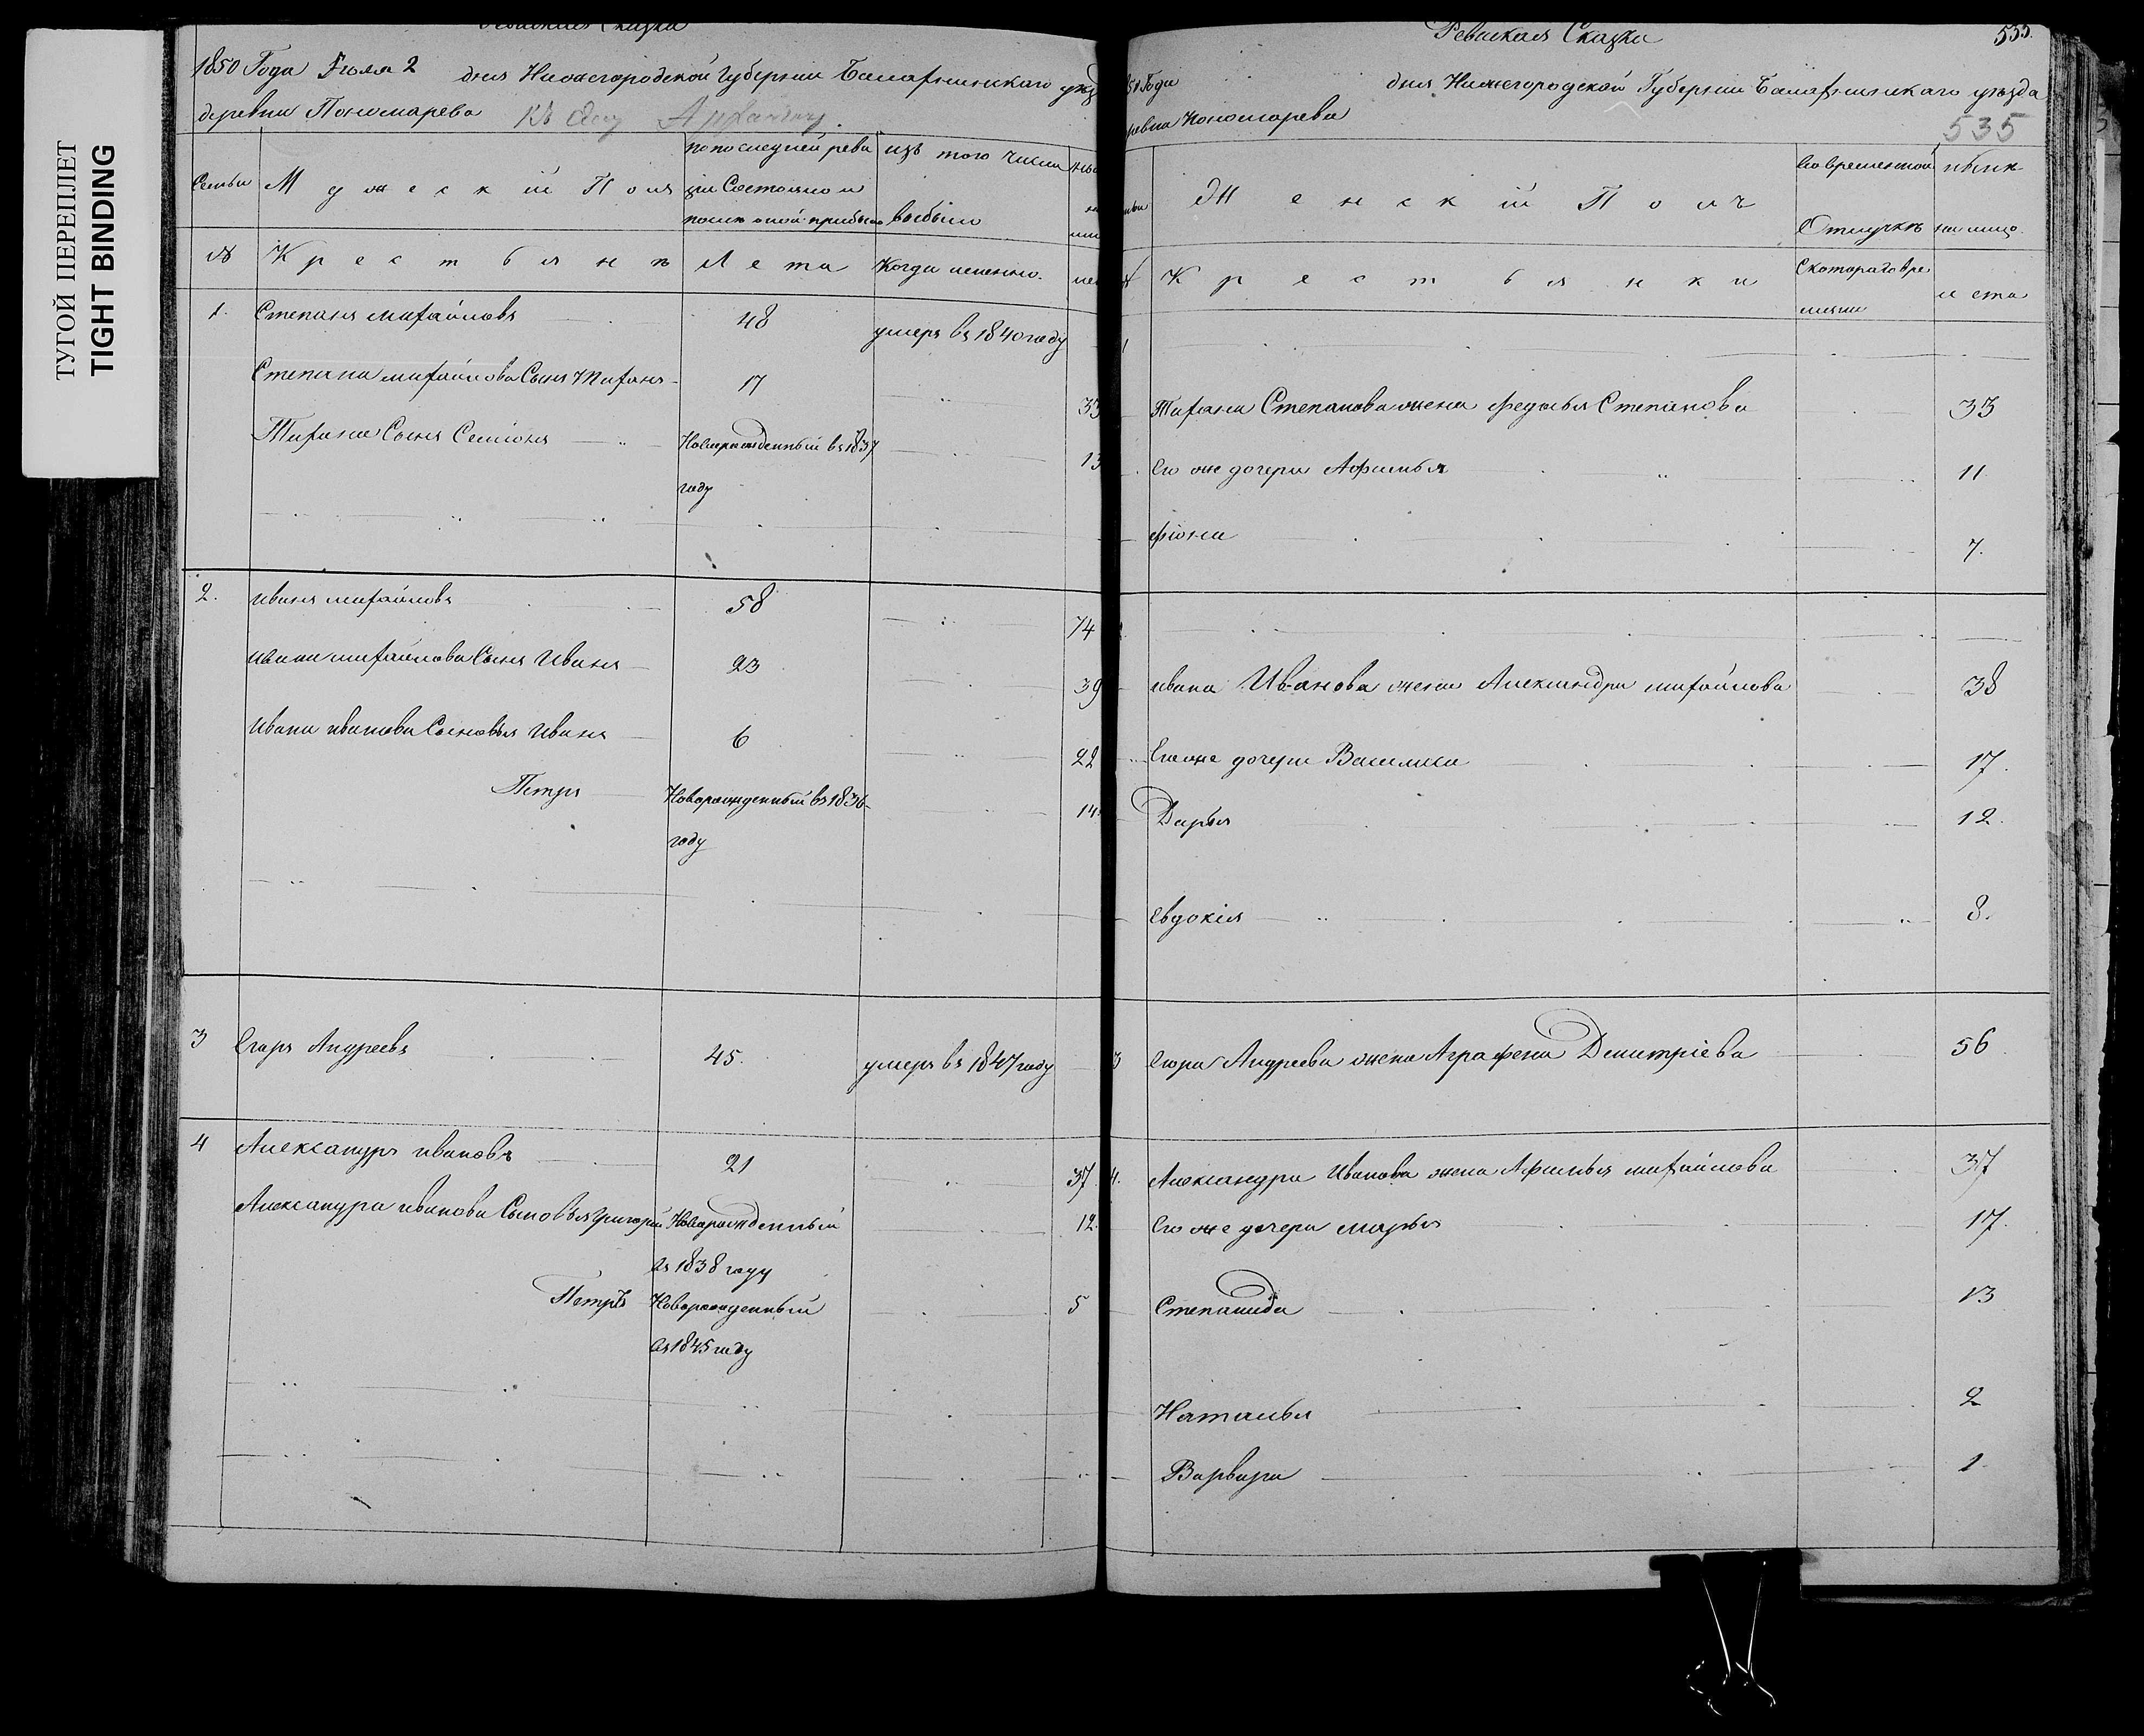 ТУГОЙ ПЕРЕПЛЕТ
TIGHT BINDING
Ревиская Сказка
1850 Года Июля 2 дня Нижегородской Губернии Балахнинского уез
деревни Пономарева
Семьи
Мужеский Полъ
по последней реви
зіи Состояло и
после оной прибыло
изъ того числа
выбыло
№
Крестьяне
Лета
Когда именно.
1.
Степанъ михайловъ 48 умеръ въ 1840 году
Степана михайлова Сынъ Тифанъ 17 33
Тифана Сынъ Семіонъ Новорожденный въ 1837 13
году
2. иванъ михайловъ 58 74
ивана михайлова Сынъ Иванъ 23 39
Ивана иванова Сыновья Иванъ 6 22
Петръ Новорожденный въ 1836 14
году
3 Егоръ Андреевъ 45. умеръ въ 1847 году
4 Александръ ивановъ 21 37
Александра иванова Сыновья Григорій Новорожденный 12.
въ 1838 году
Петръ Новорожденный 5
въ 1845 году
Ревиская Сказка
535.
Года дня Нижегородской Губерніи Балахнинскаго уезда
Пономарева
535
Женскій Полъ
Во временной
Отлучке
ныне
на лицо.
Крестьянки
Скотораговре
мени
лета
1
Тифана Степанова жена Федосья Степанова 33
Его же дочери Афимья 11.
Фіона 7.
ивана Иванова жена Александра михайлова 38
Его же дочери Василиса 17.
Дарья 12.
Евдокія 8.
3 Егора Андреева жена Аграфена Дмитріева 56
4. Александра Иванова жена Афимья михайлова 37
Его же дочери марья 17.
Степанида 13
Наталья 2
Варвара 1